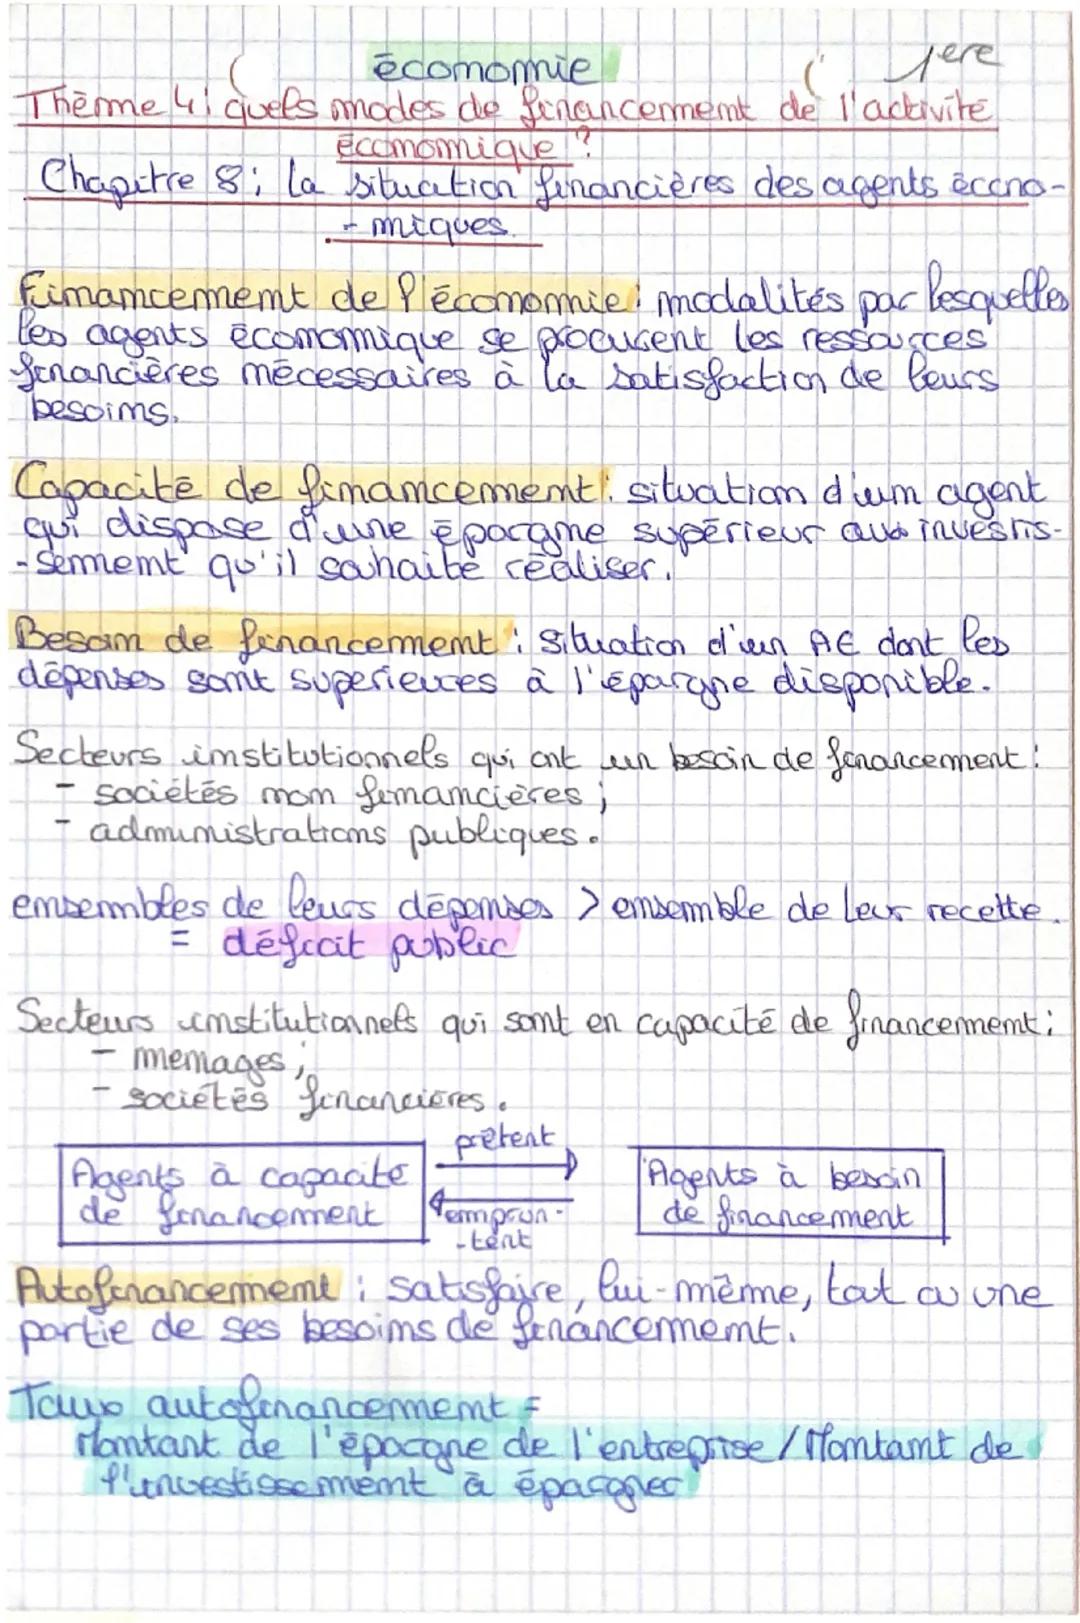 économie
1ere
Thème 4: quels modes de financement de l'activité
économique ?
Chapitre 8: la situation financières des agents écono-
-miques.
Financement de l'économie: modalités par lesquelles
les agents économique se procurent les ressources
financières nécessaires à la satisfaction de leurs
besoins.
Capacité de financement: situation d'un agent
qui dispose d'une épargne supérieur aux investis-
-sement qu'il souhaite réaliser.
Besoin de financement: situation d'un AE dont les
dépenses sont superieures à l'épargne disponible.
Secteurs institutionnels qui ont un besoin de financement:
- sociétés non financières ;
- administrations publiques.
ensembles de leurs dépenses > ensemble de leur recette.
= déficit public
Secteurs institutionnels qui sont en capacité de financement:
- menages ;
- sociétés financieres.
prêtent
Agents à capacité
de financement
emprun-
-tent
Agents à besoin
de financement
Autofinancement : satisfaire, lui-même, tout ou une
partie de ses besoins de financement.
Taux autofinancement =
Montant de l'épargne de l'entreprise / Montant de
l'investissement à épargner